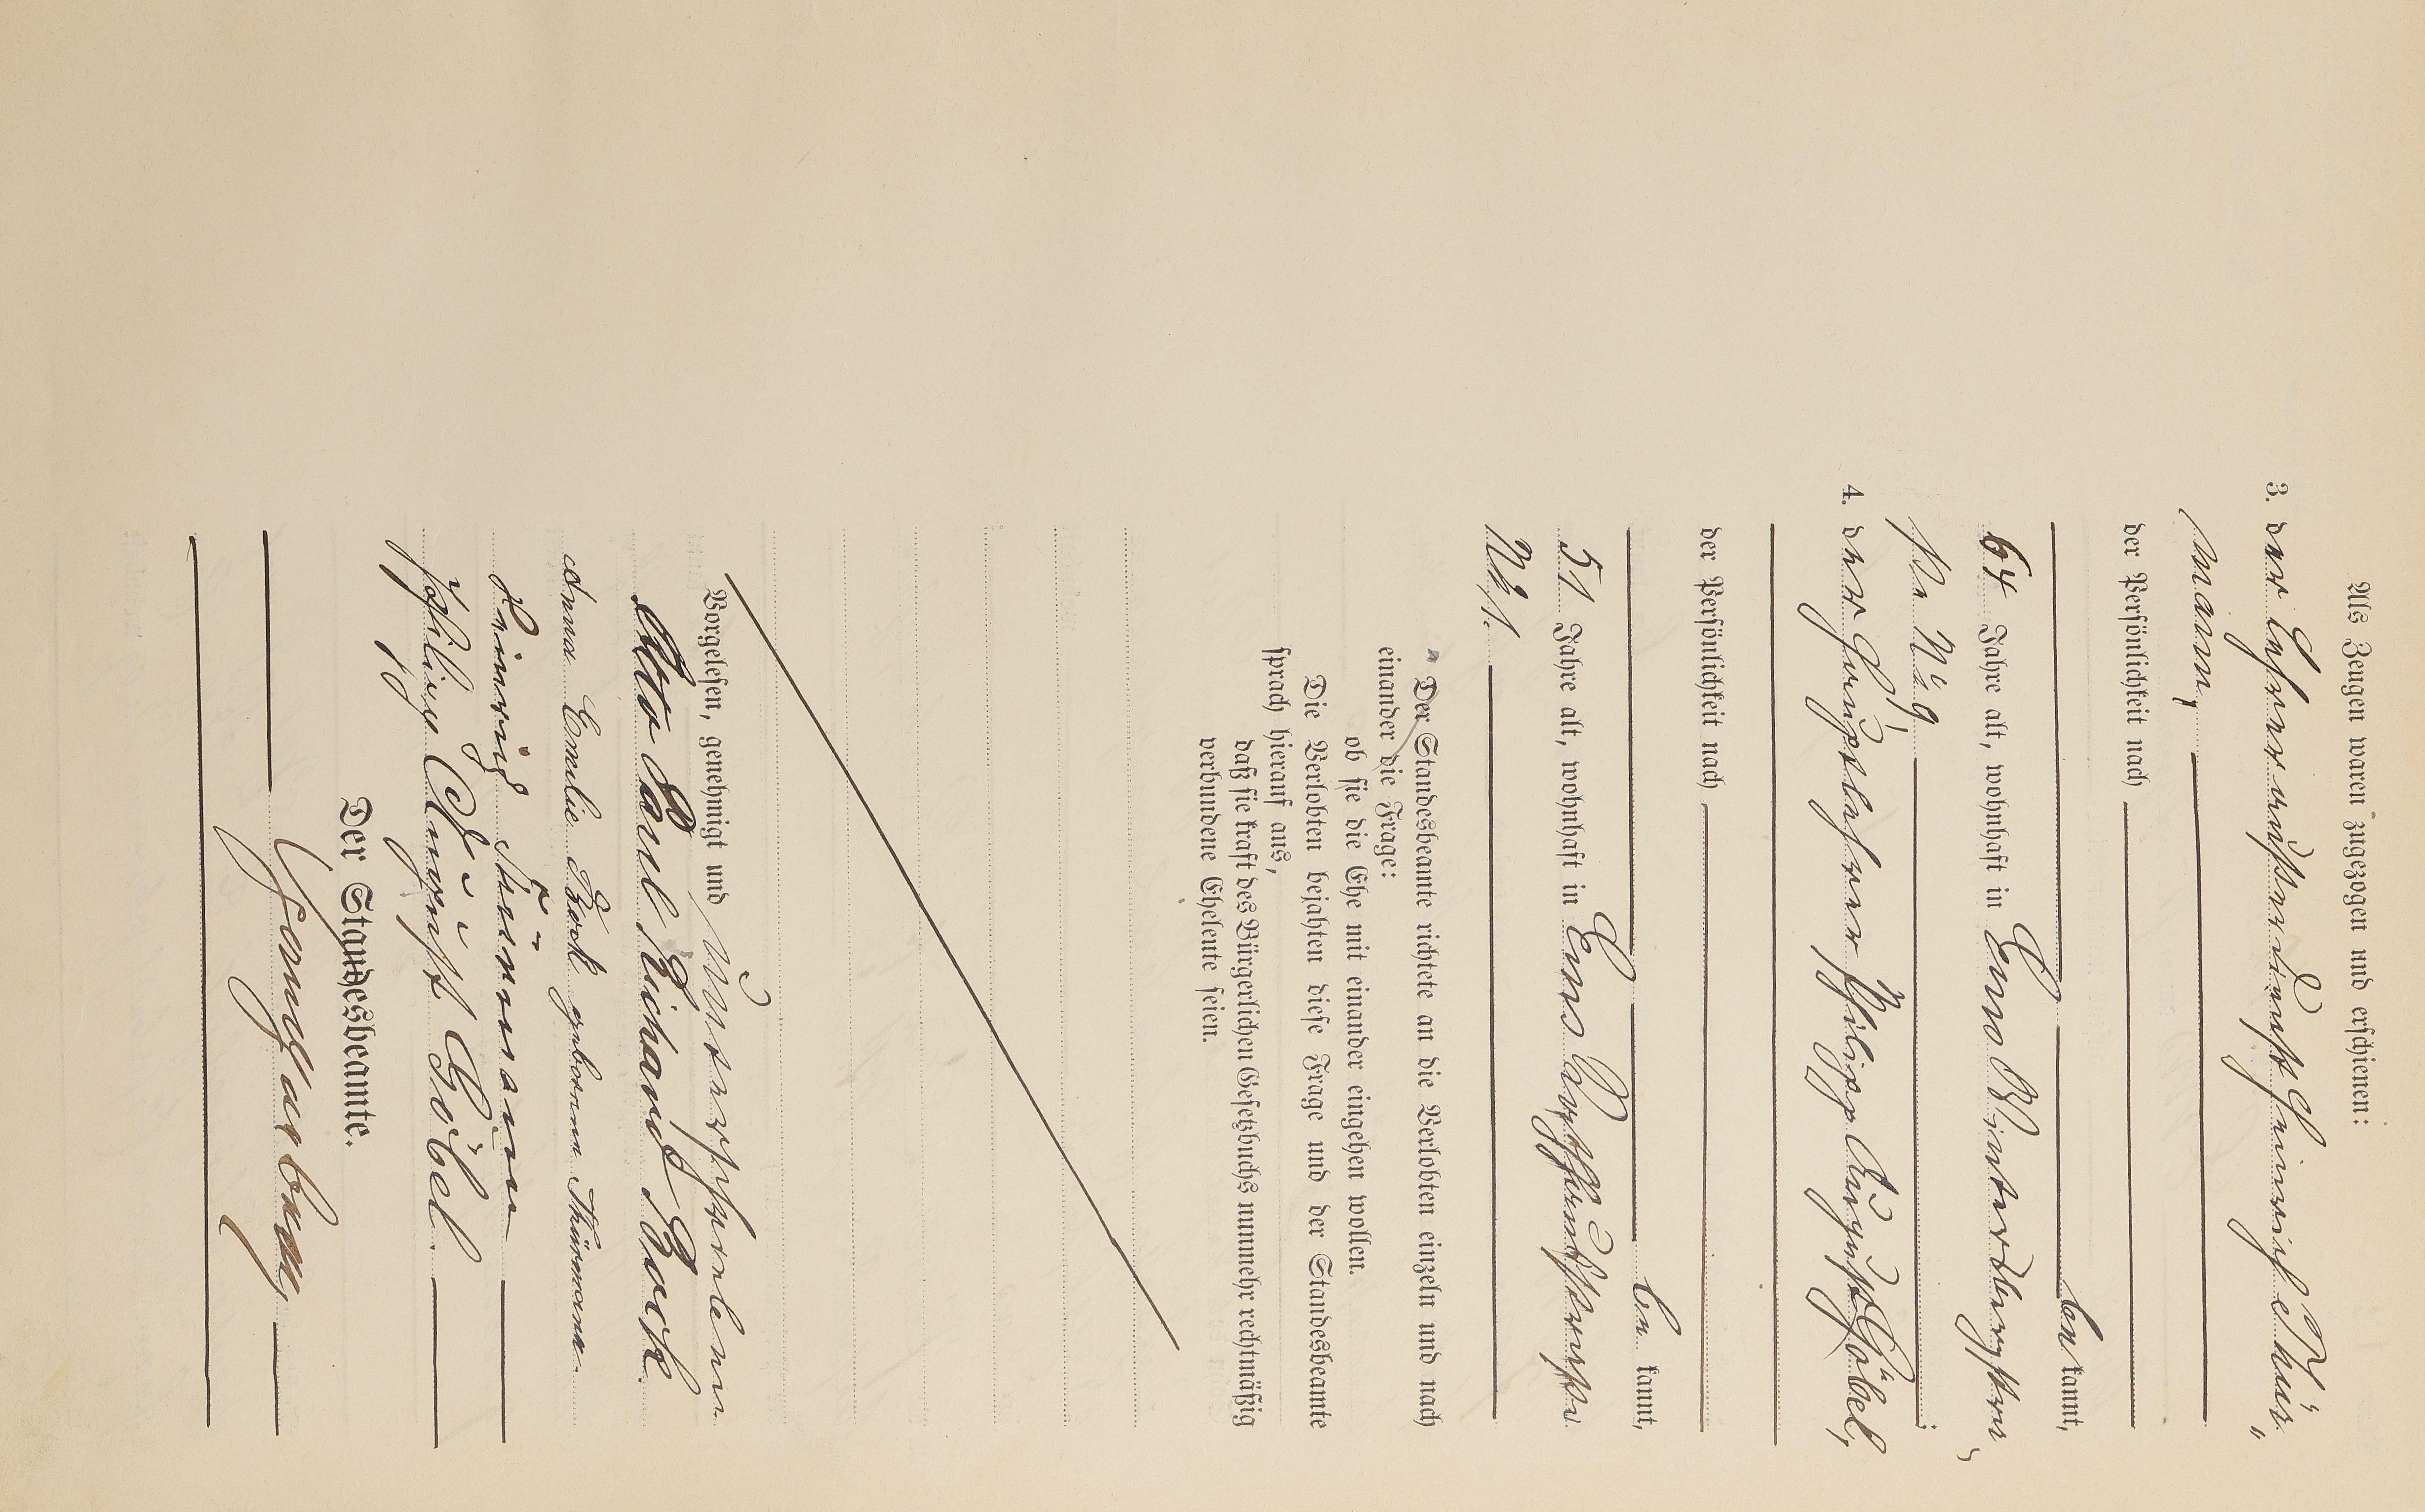 Als Zeugen waren zugezogen und erschienen:
3. der Lehrer außer Dienst Heinrich Thür„
mann,
der Persönlichkeit nach
be kannt,
64 Jahre alt, wohnhaft in Ems Winterbergstra
ße Nr 9;
4. der Hauptlehrer Philipp August Göbel,
der Persönlichkeit nach
be kannt,
51 Jahre alt, wohnhaft in Ems
No 1.
Der Standesbeamte richtete an die Verlobten einzeln und nach
einander die Frage:
ob sie die Ehe mit einander eingehen wollen.
Die Verlobten bejahten diese Frage und der Standesbeamte
sprach hierauf aus,
daß sie kraft des Bürgerlichen Gesetzbuchs nunmehr rechtmäßig
verbundene Eheleute seien.
Vorgelesen, genehmigt und unterschrieben
Otto Paul Richard Bock
Anna Emilie Bock geborene Thürmann.
Heinrich Thürmann
Philipp August Göbel.
Der Standesbeamte.